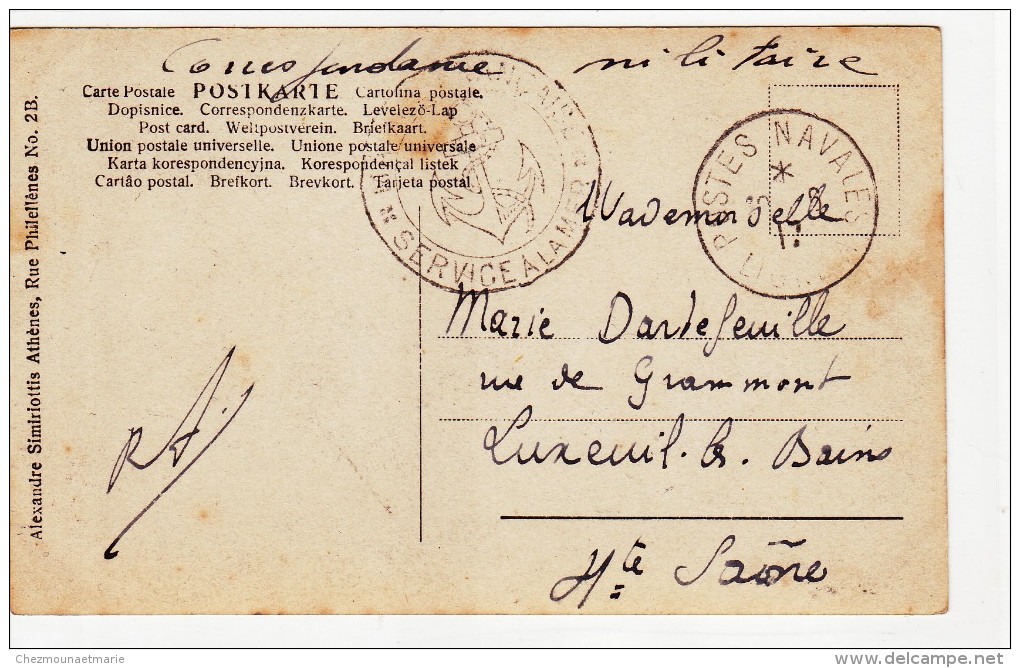 Correspondance militaire
Carte Postale POSTKARTE Cartolina postale.
Dopisnice. Correspondenzkarte. Levelező-Lap
Post card. Weltpostverein. Briefkaart.
Union postale universelle. Unione postale universale
Karta korespondencyjna. Korespondençal listek
Cartâo postal. Brefkort. Brevkort. Tarjeta postal.
SERVICE A LA MER
POSTES NAVALES
*
Mademoiselle
Marie Dartefeuille
rue de Grammont
Luxeuil-les-Bains
Hte Saône
Alexandre Simiriottis Athènes, Rue Philellènes No. 2B.
Chezmounaetmarie
delcampe.net